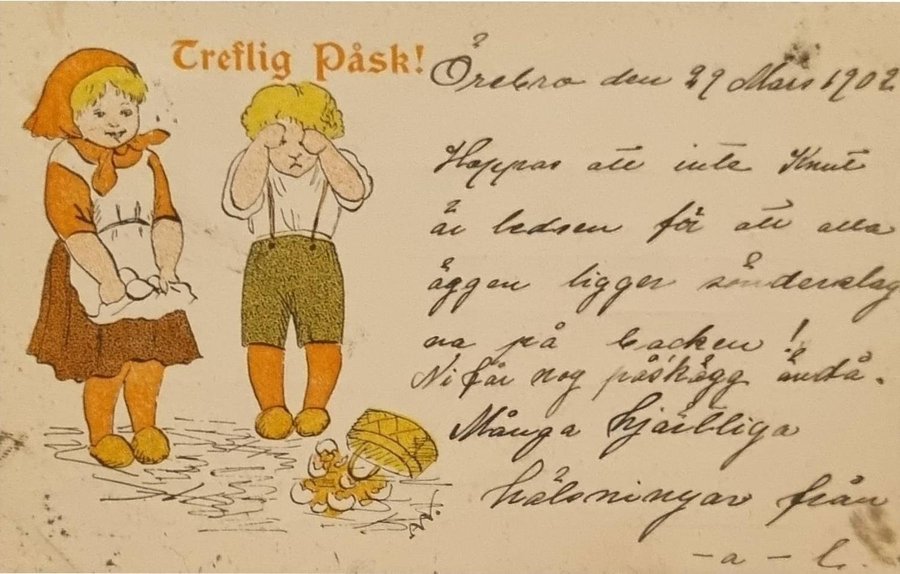 Treflig Påsk!
Örebro den 29 Mars 1902
Hoppas att inte Knut
är ledsen för att alla
äggen ligger sönderslag
na på backen!
Ni får nog påskägg ändå.
Många hjärtliga
hälsningar från
-a-l.